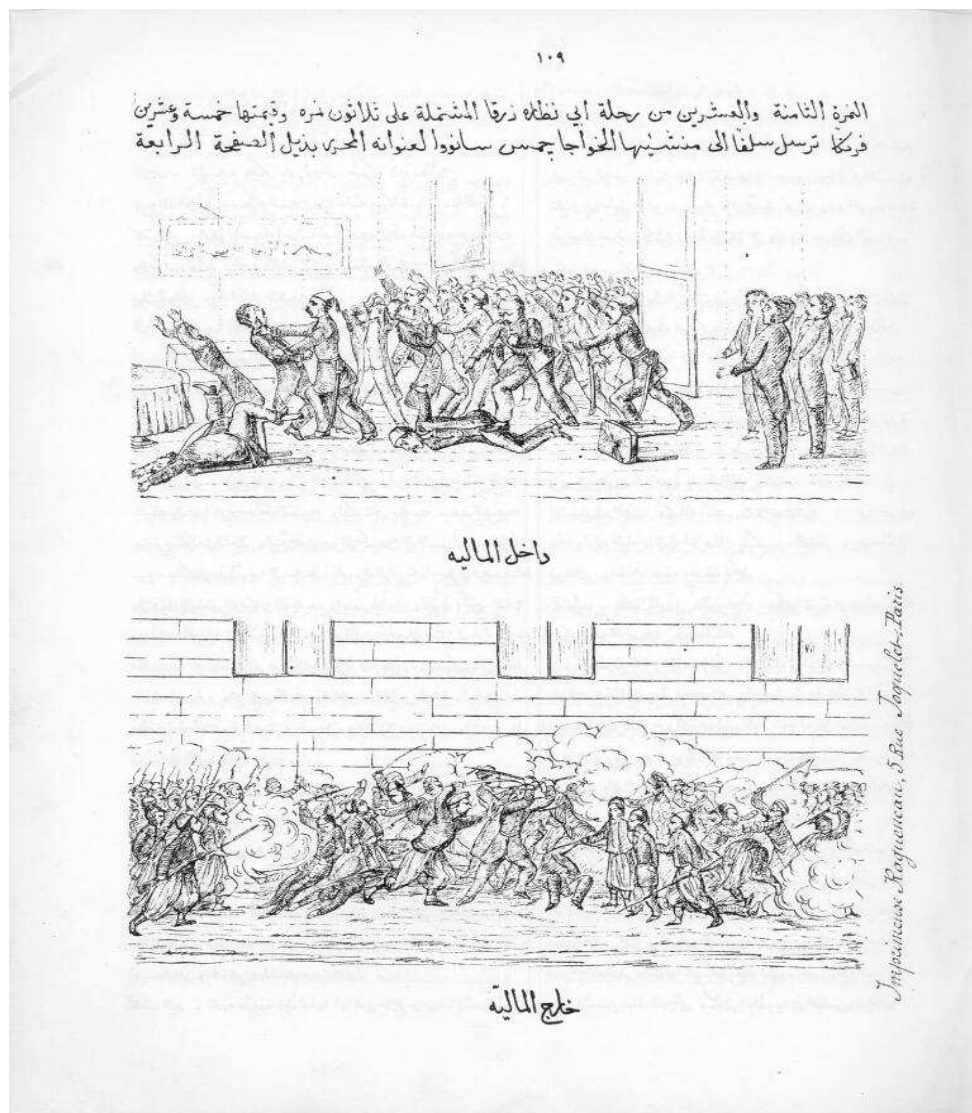 ١٠٩
النمرة الثامنة والعشرين من رحلة أبي نظاره زرقا المشتملة على ثلاثون نمره وقيمتها خمسة وعشرين
فرنكا ترسل سلفا الى منشئها الخواجا جمس سانووا لعنوانه المحرر بذيل الصفحة الرابعة
داخل الماليه
Imprimeur Ragueneau, 5 Rue Joquelet-Paris.
خارج الماليّة